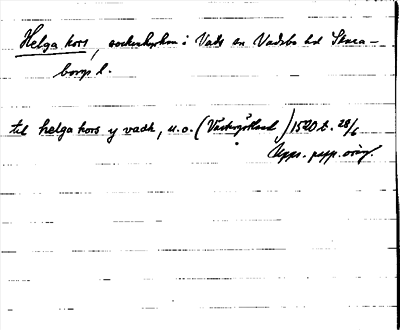 Helga kors, sockenkyrkan i Vads sn Vadsbo hd Skara-
borgs l.
til helga kors y vadh, u.o. (Västergötland) 1520 t. 28/6
Upps. papp. orig.